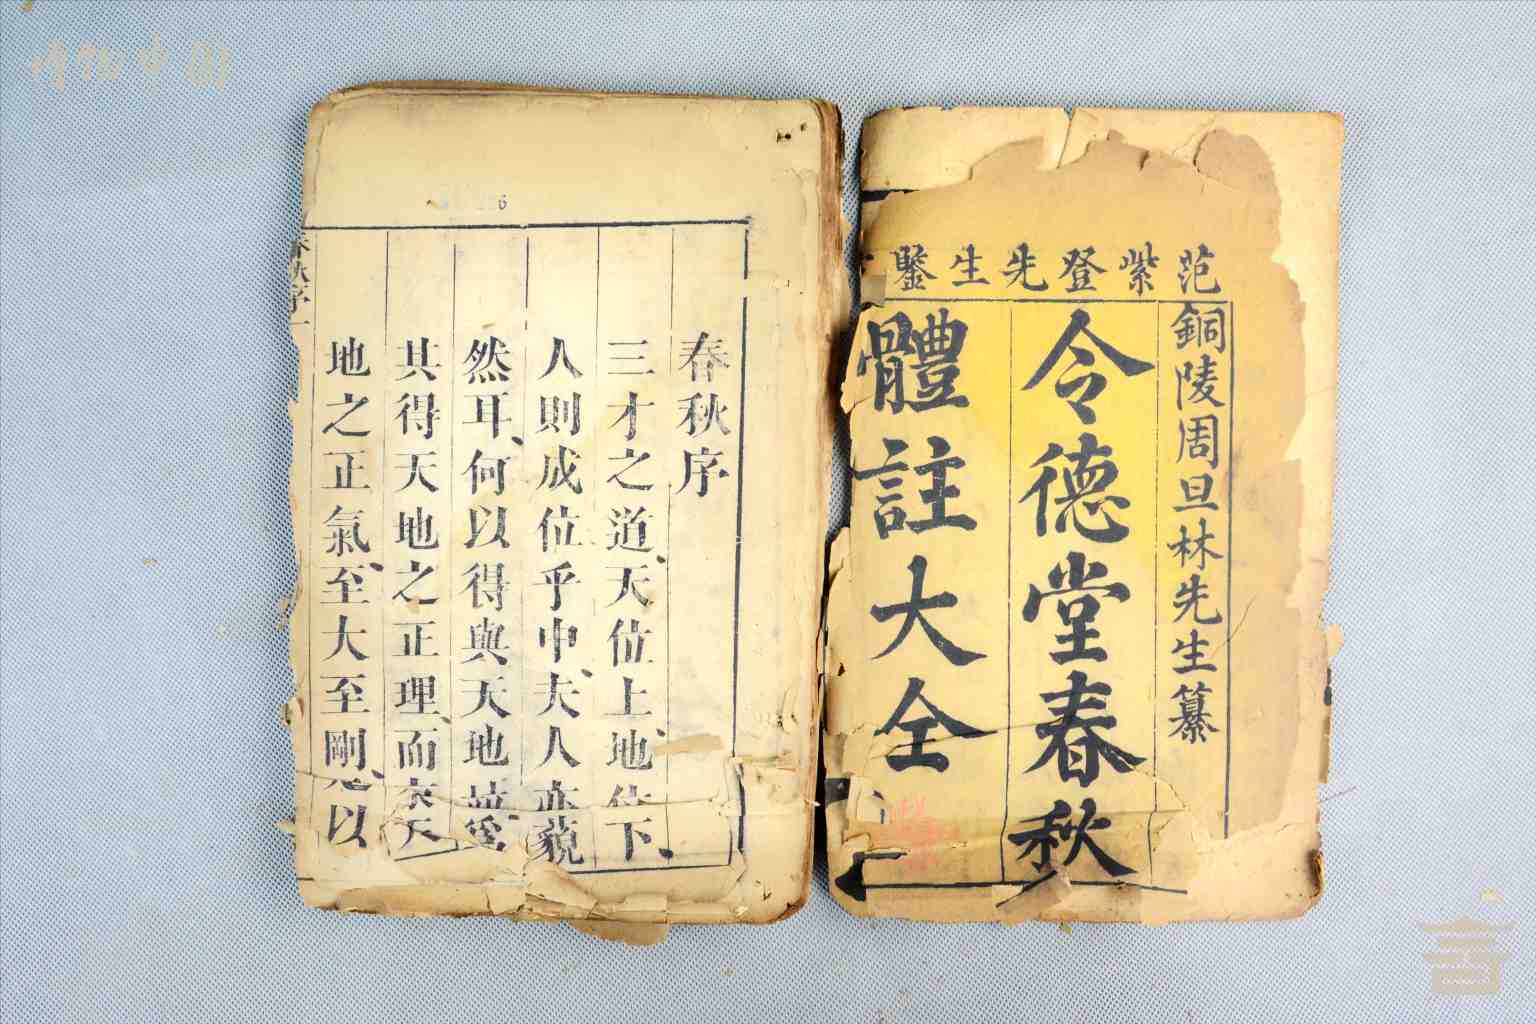 范紫登先生鑒
銅陵周旦林先生纂
令德堂春秋
體註大全
春秋序
三才之道天位上地位下
人則成位乎中夫人亦藐
然耳何以得與天地並
其得天地之正理而
地之正氣至大至剛以
春秋序一
6